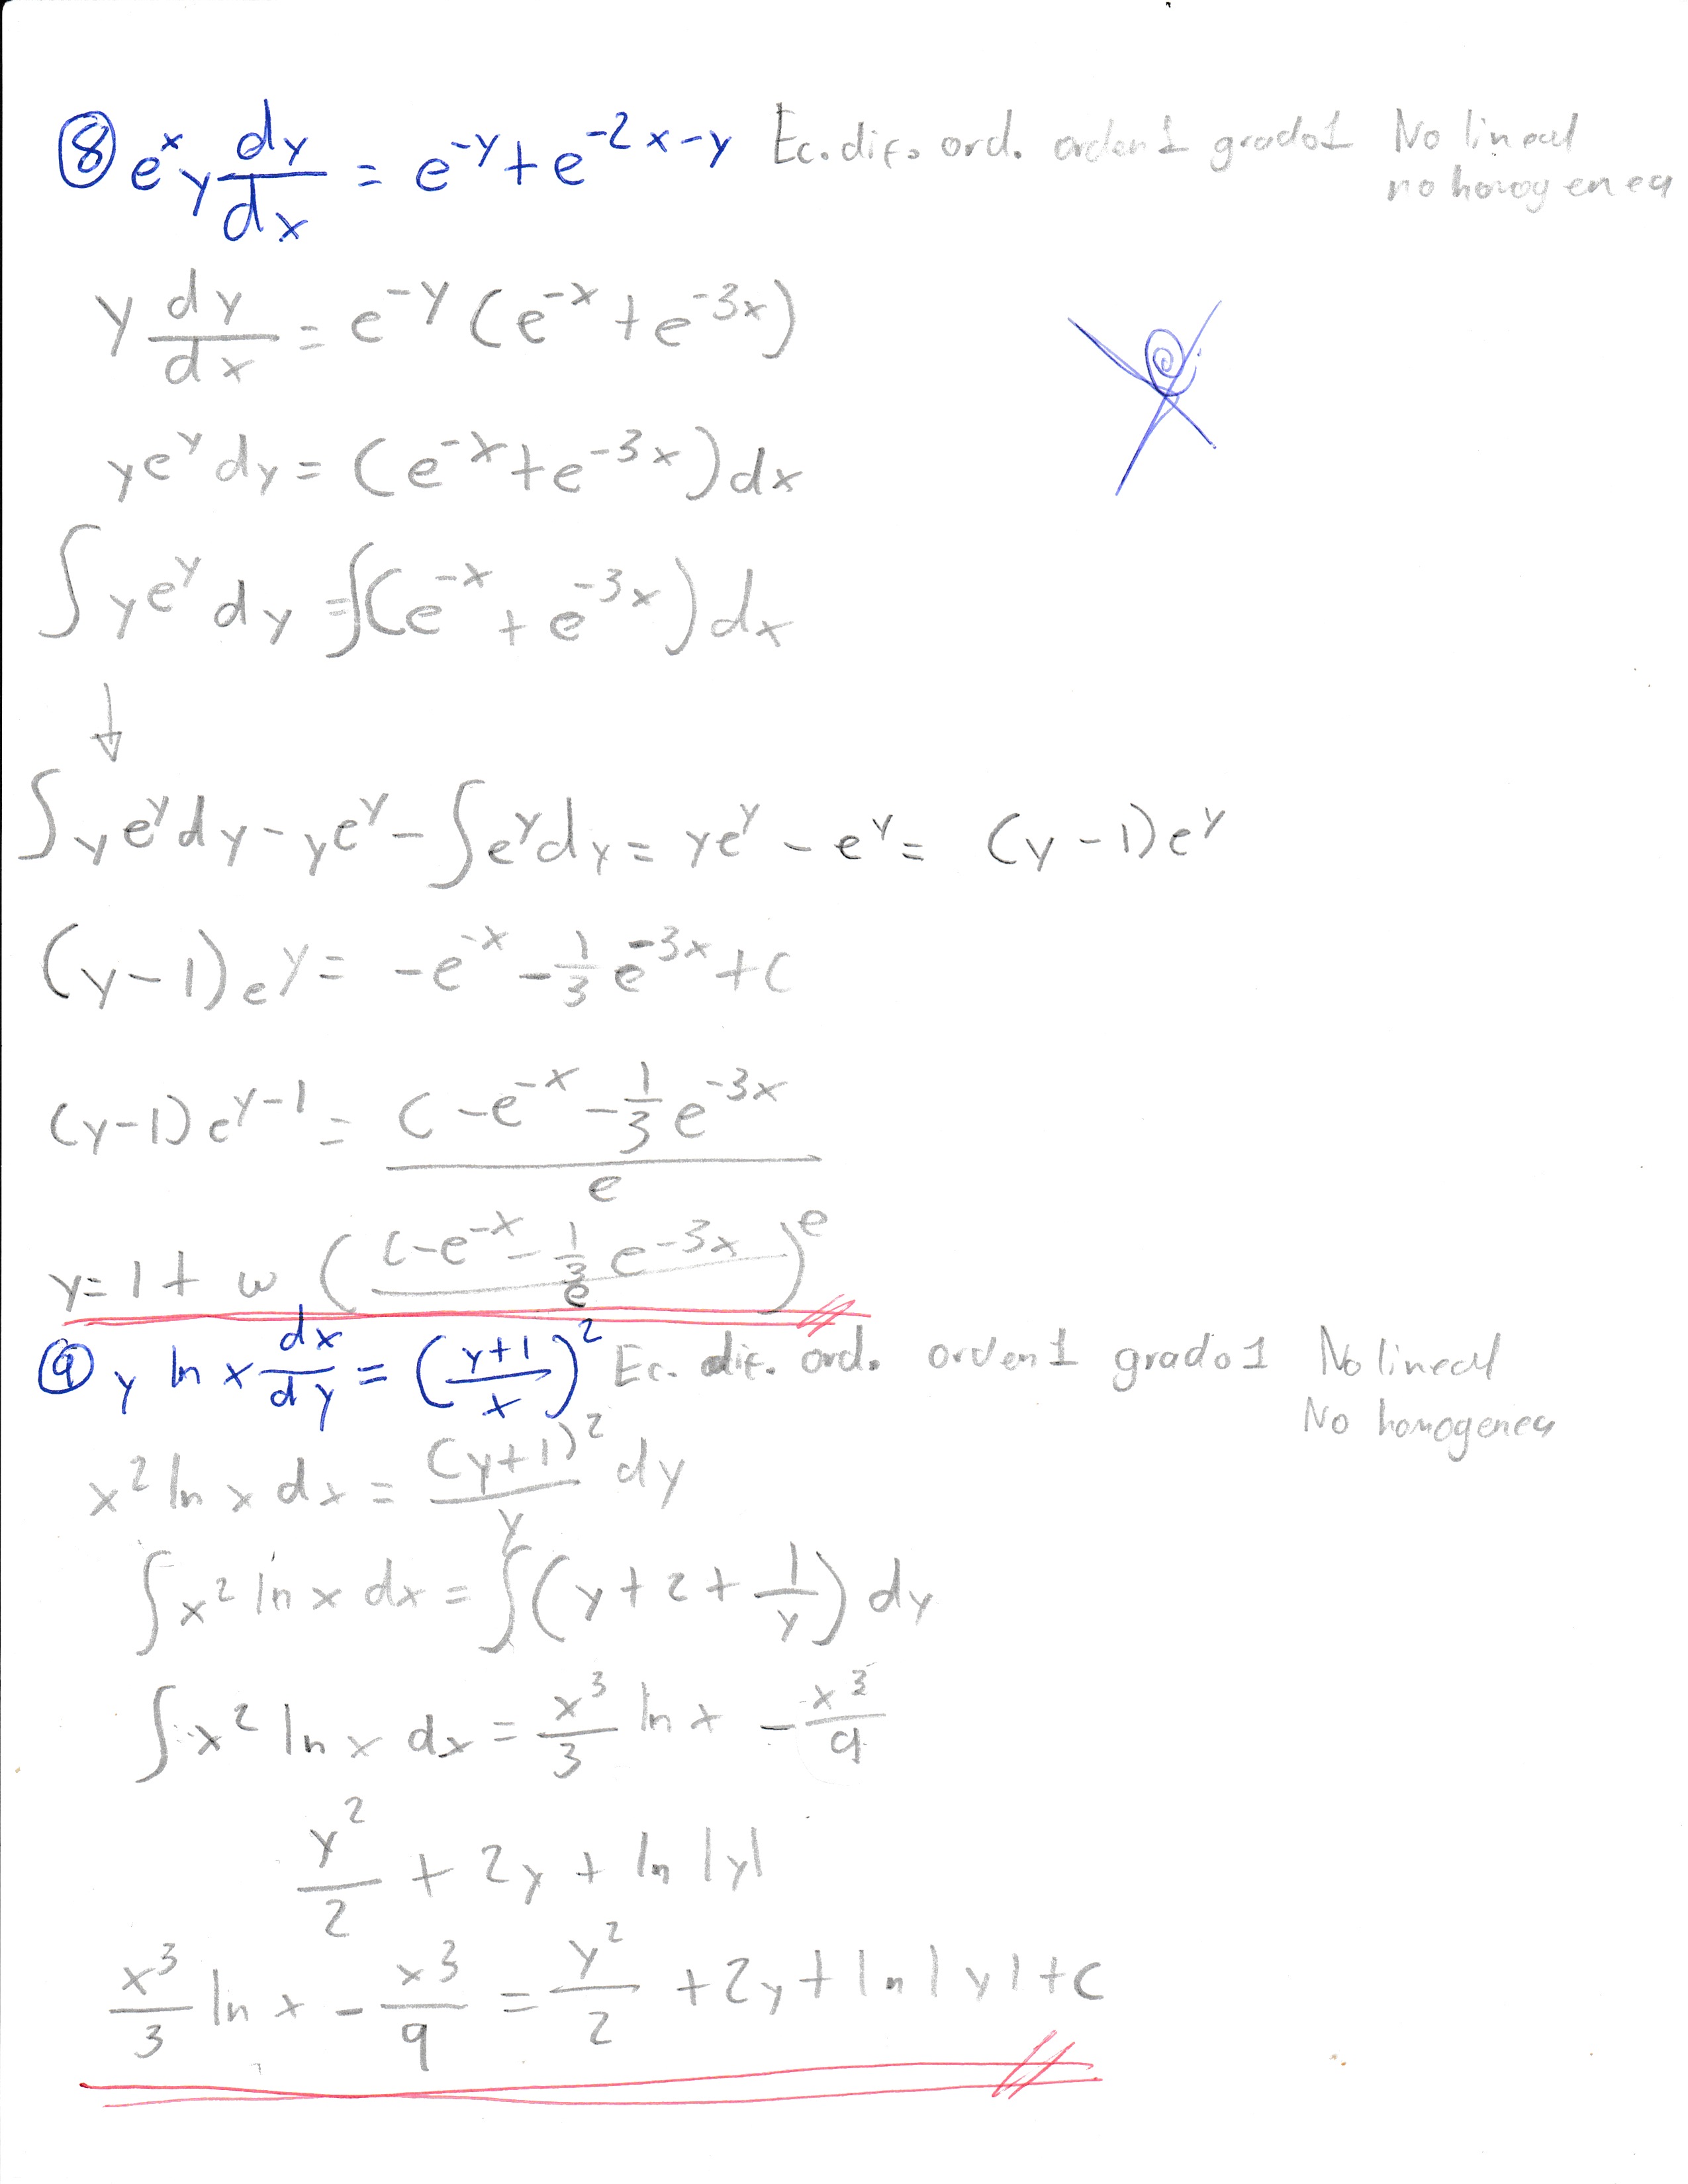 ⑧ e^x y dy/dx = e^-y + e^-2x-y Ec. dif. ord. orden 1 grado 1 No lineal
no homogenea
y dy/dx = e^-y (e^-x + e^-3x)
ye^y dy = (e^-x + e^-3x) dx
∫ ye^y dy = ∫(e^-x + e^-3x) dx
↓
∫ ye^y dy - ye^y - ∫ e^y dy = ye^y - e^y = (y - 1) e^y
(y - 1) e^y = -e^-x - 1/3 e^-3x + C
(y-1) e^y-1 = (C - e^-x - 1/3 e^-3x)/e
y = 1 + w ((C - e^-x - 1/3 e^-3x)/e)^e
⑨ y ln x dx/dy = ((y+1)/x)^2 Ec. dif. ord. orden 1 grado 1 No lineal
No homogenea
x^2 ln x dx = (y+1)^2/y dy
∫ x^2 ln x dx = ∫(y + 2 + 1/y) dy
∫ x^2 ln x dx = x^3/3 ln x - x^3/9
y^2/2 + 2y + ln |y|
x^3/3 ln x - x^3/9 = y^2/2 + 2y + ln |y| + C